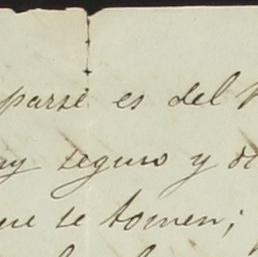 parse es del
seguro y de
que se tomen;